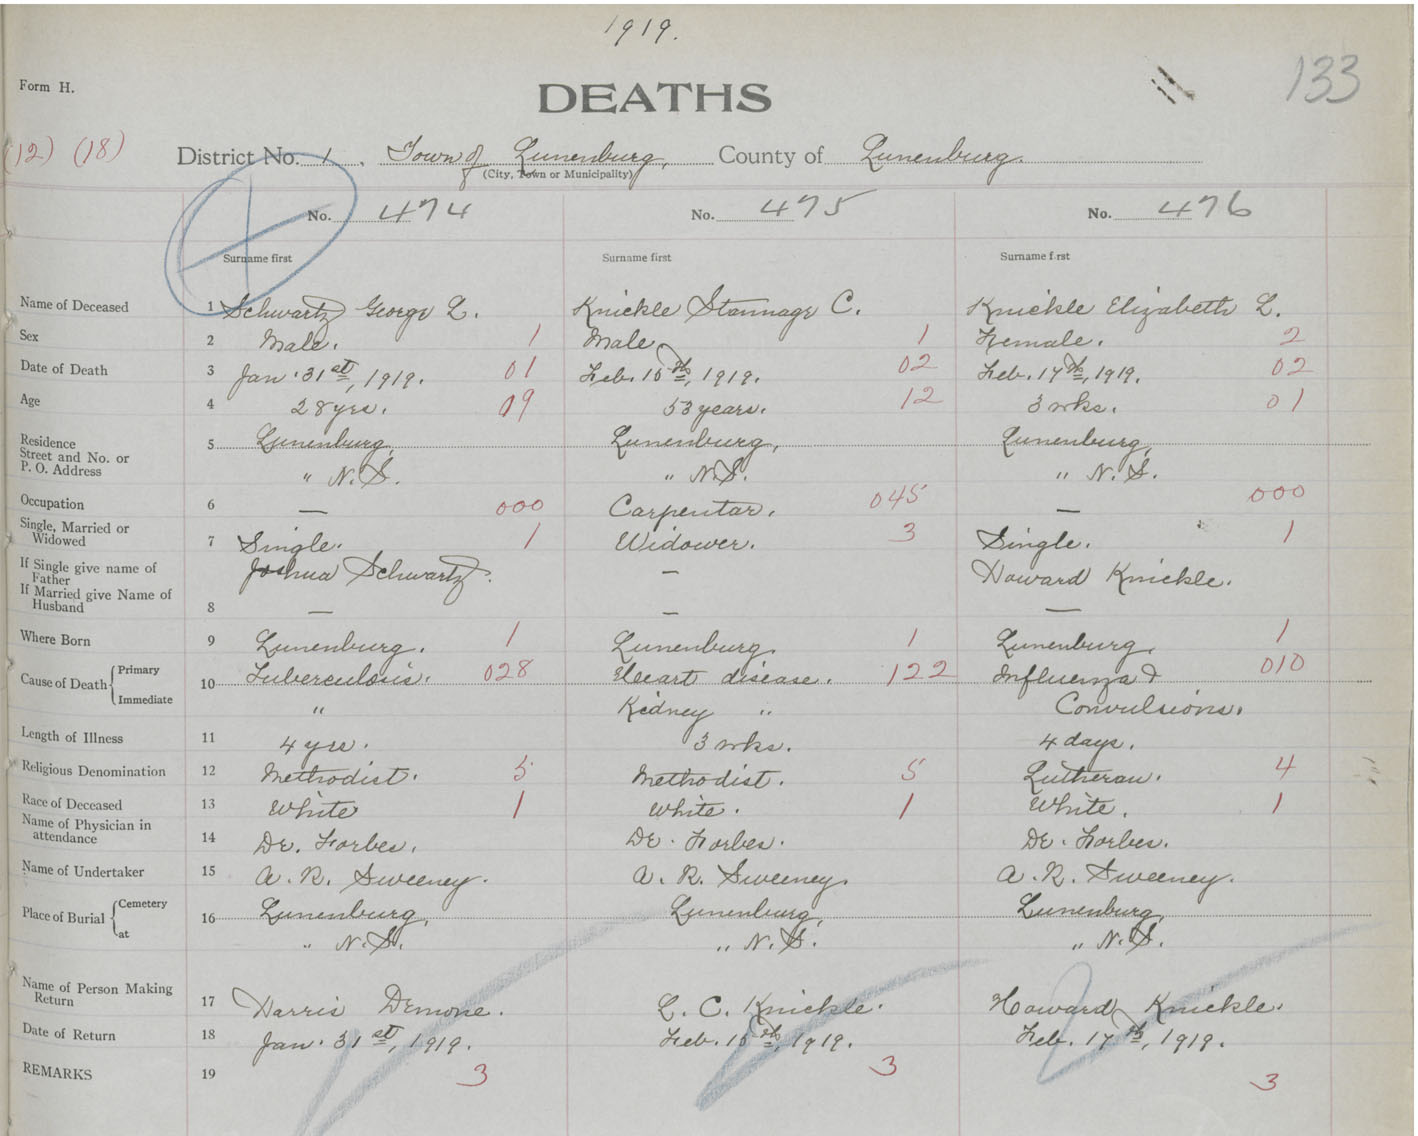 1919.
133
Form H.
DEATHS
(12) (18)
District No. 1. Town of Lunenburg, County of Lunenburg.
(City, Town or Municipality)
No. 474 No. 475 No. 476
Surname first Surname first Surname first
Name of Deceased 1 Schwartz George L. Knickle Stannage C. Knickle Elizabeth L.
Sex 2 Male. 1 Male 1 Female. 2
Date of Death 3 Jan. 31st, 1919. 01 Feb. 10th, 1919. 02 Feb. 17th, 1919. 02
Age 4 28 yrs. 09 53 years. 12 3 wks. 01
Residence
Street and No. or 5 Lunenburg, Lunenburg, Lunenburg,
P. O. Address " N.S. " N.S. " N.S.
Occupation 6 — 000 Carpentar. 045 — 000
Single, Married or
Widowed 7 Single. 1 Widower. 3 Single. 1
If Single give name of
Father Joshua Schwartz. — Howard Knickle.
If Married give Name of
Husband 8 — — —
Where Born 9 Lunenburg. 1 Lunenburg. 1 Lunenburg. 1
Cause of Death Primary 10 Tuberculosis. 028 Heart disease. 122 Influenza & 010
Immediate " Kidney " Convulsions.
Length of Illness 11 4 yrs. 3 wks. 4 days.
Religious Denomination 12 Methodist. 5 Methodist. 5 Lutheran. 4
Race of Deceased 13 White 1 White. 1 White. 1
Name of Physician in
attendance 14 Dr. Forbes. Dr. Forbes. Dr. Forbes.
Name of Undertaker 15 A. R. Sweeney. A. R. Sweeney. A. R. Sweeney.
Place of Burial Cemetery 16 Lunenburg, Lunenburg, Lunenburg,
at " N.S. " N.S. " N.S.
Name of Person Making
Return 17 Harris Demone. L. C. Knickle. Howard Knickle.
Date of Return 18 Jan. 31st, 1919. Feb. 10th, 1919. Feb. 17th, 1919.
REMARKS 19 3 3 3